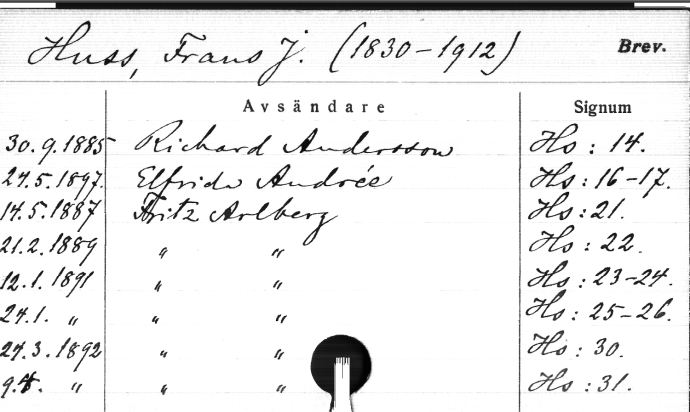 Huss, Frans J. (1830-1912) Brev.
Avsändare Signum
30.9.1885 Richard Andersson Hs: 14.
27.5.1897. Elfrida Andrée Hs: 16-17.
14.5.1887 Fritz Arlberg Hs: 21.
21.2.1889 " " Hs: 22.
12.1.1891 " " Hs: 23-24.
24.1. " " " Hs: 25-26.
24.3.1892 " " Hs: 30.
9.4. " " " Hs: 31.